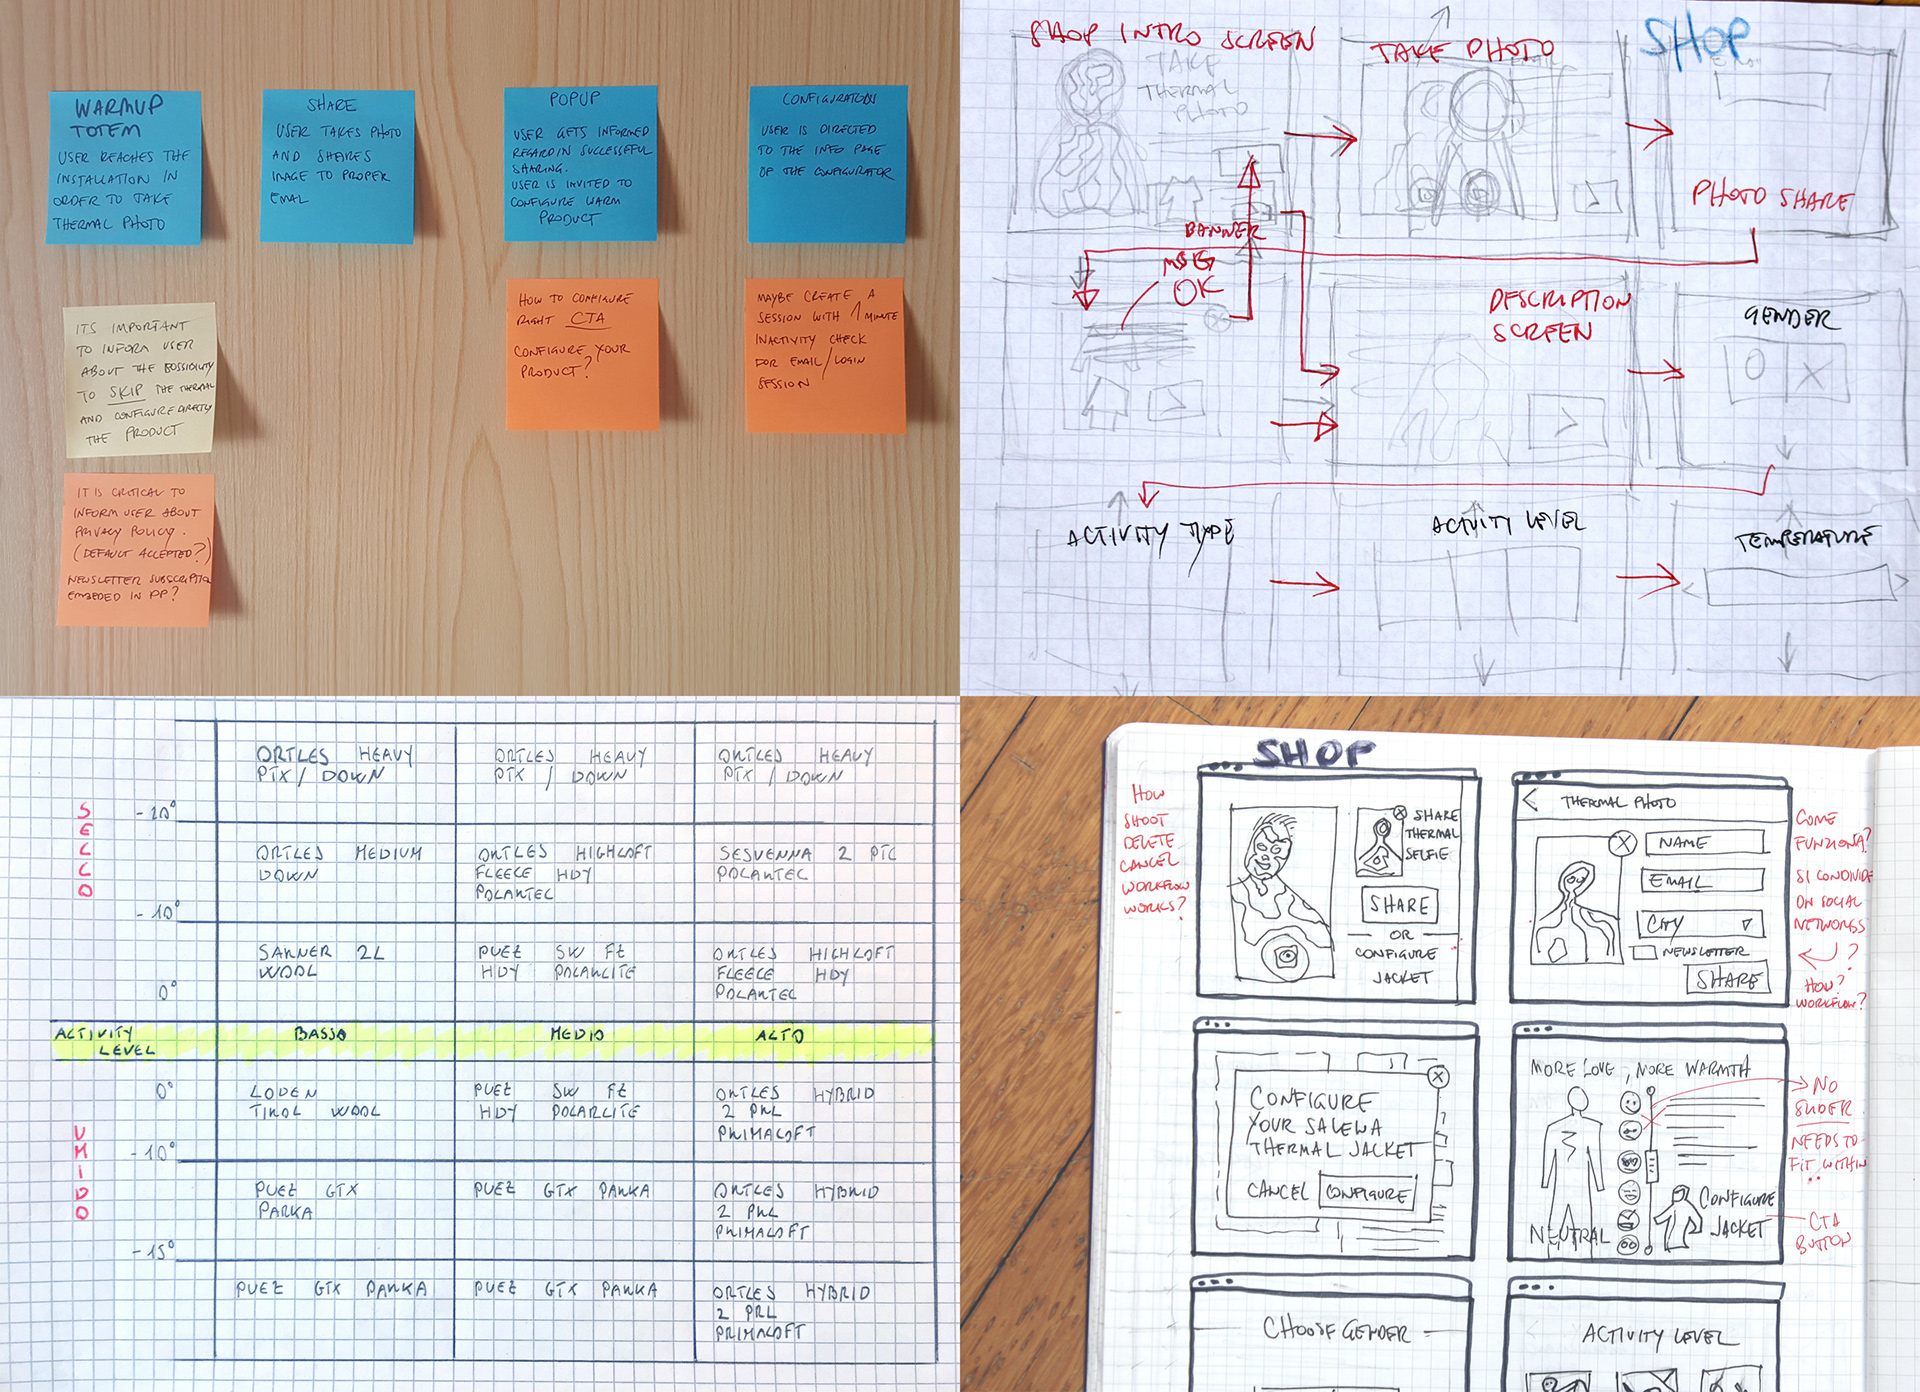 WARMUP
TOTEM
USER REACHES THE
INSTALLATION IN
ORDER TO TAKE
THERMAL PHOTO
SHARE
USER TAKES PHOTO
AND SHARES
IMAGE TO PROPER
EMAIL
POPUP
USER GETS INFORMED
REGARDIN SUCCESSEFUL
SHARING.
USER IS INVITED TO
CONFIGURE WARM
PRODUCT
CONFIGURATION
USER IS DIRECTED
TO THE INFO PAGE
OF THE CONFIGURATOR
ITS IMPORTANT
TO INFORM USER
ABOUT THE POSSIBILITY
TO SKIP THE THERMAL
AND CONFIGURE DIRECTLY
THE PRODUCT
HOW TO CONFIGURE
RIGHT CTA
CONFIGURE YOUR
PRODUCT?
MAYBE CREATE A
SESSION WITH 1 MINUTE
INACTIVITY CHECK
FOR EMAIL/LOGIN
SESSION
IT IS CRITICAL TO
INFORM USER ABOUT
PRIVACY POLICY.
(DEFAULT ACCEPTED?)
NEWSLETTER SUBSCRIPTION
EMBEDED IN PP?
SHOP INTRO SCREEN
TAKE PHOTO
SHOP
TAKE
THERMAL
PHOTO
EMAIL
PHOTO SHARE
BANNER
MSG
OK
DESCRIPTION
SCREEN
GENDER
ACTIVITY TYPE
ACTIVITY LEVEL
TEMPERATURE
ORTLES HEAVY
PTX/DOWN
ORTLES HEAVY
PTX/DOWN
ORTLES HEAVY
PTX/DOWN
SECCO
-20°
ORTLES MEDIUM
DOWN
ORTLES HIGHLOFT
FLEECE HDY
POLARTEC
SESVENNA 2 PTC
POLARTEC
-10°
SARNER 2L
WOOL
PUEZ SW FZ
HDY POLARLITE
ORTLES HIGHLOFT
FLEECE HDY
POLARTEC
0°
ACTIVITY
LEVEL
BASSO
MEDIO
ALTO
0°
LODEN
TIROL WOOL
PUEZ SW FZ
HDY POLARLITE
ORTLES HYBRID
2 PRL
PRIMALOFT
UMIDO
-10°
PUEZ GTX
PARKA
PUEZ GTX PARKA
ORTLES HYBRID
2 PRL
PRIMALOFT
-15°
PUEZ GTX PARKA
PUEZ GTX PARKA
ORTLES HYBRID
2 PRL
PRIMALOFT
SHOP
HOW
SHOOT
DELETE
CANCEL
WORKFLOW
WORKS?
SHARE
THERMAL
SELFIE
SHARE
OR
CONFIGURE
JACKET
THERMAL PHOTO
NAME
EMAIL
CITY
NEWSLETTER
SHARE
COME
FUNZIONA?
SI CONDIVIDE
ON SOCIAL
NETWORKS
?
HOW?
WORKFLOW?
CONFIGURE
YOUR SALEWA
THERMAL JACKET
CANCEL CONFIGURE
MORE LOVE, MORE WARMTH
NEUTRAL
CONFIGURE
JACKET
NO
SLIDER
NEEDS TO
FIT WITHIN
CTA
BUTTON
CHOOSE GENDER
ACTIVITY LEVEL